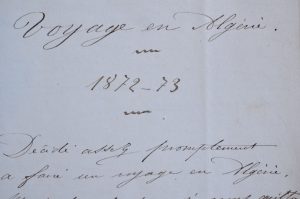 Voyage en Algérie.
1872-73
Décidé assez promptement
a faire un voyage en Algérie,